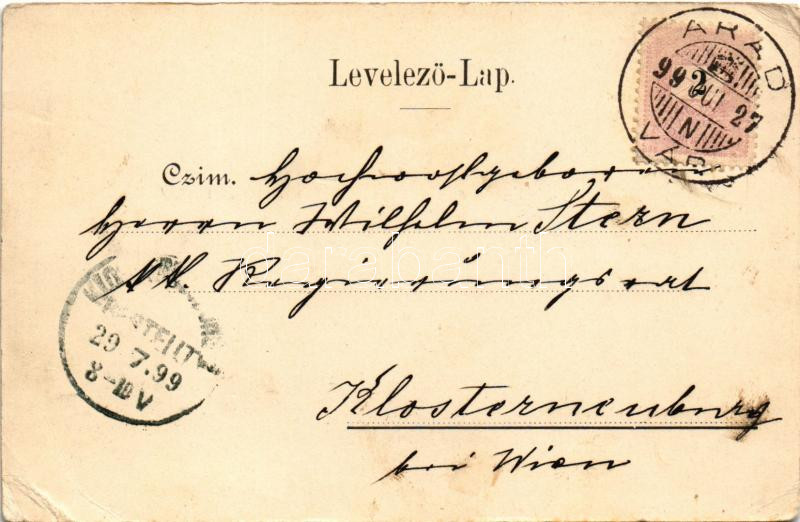 Levelező-Lap.
ARAD
992 JUL 27
N
VÁR
Czím. Hochwohlgeboren
Herrn Wilhelm Stern
k.k. Regierungsrat
29 7.99
8-10 V
BESTELLT
Klosterneuburg
bei Wien
darabanth